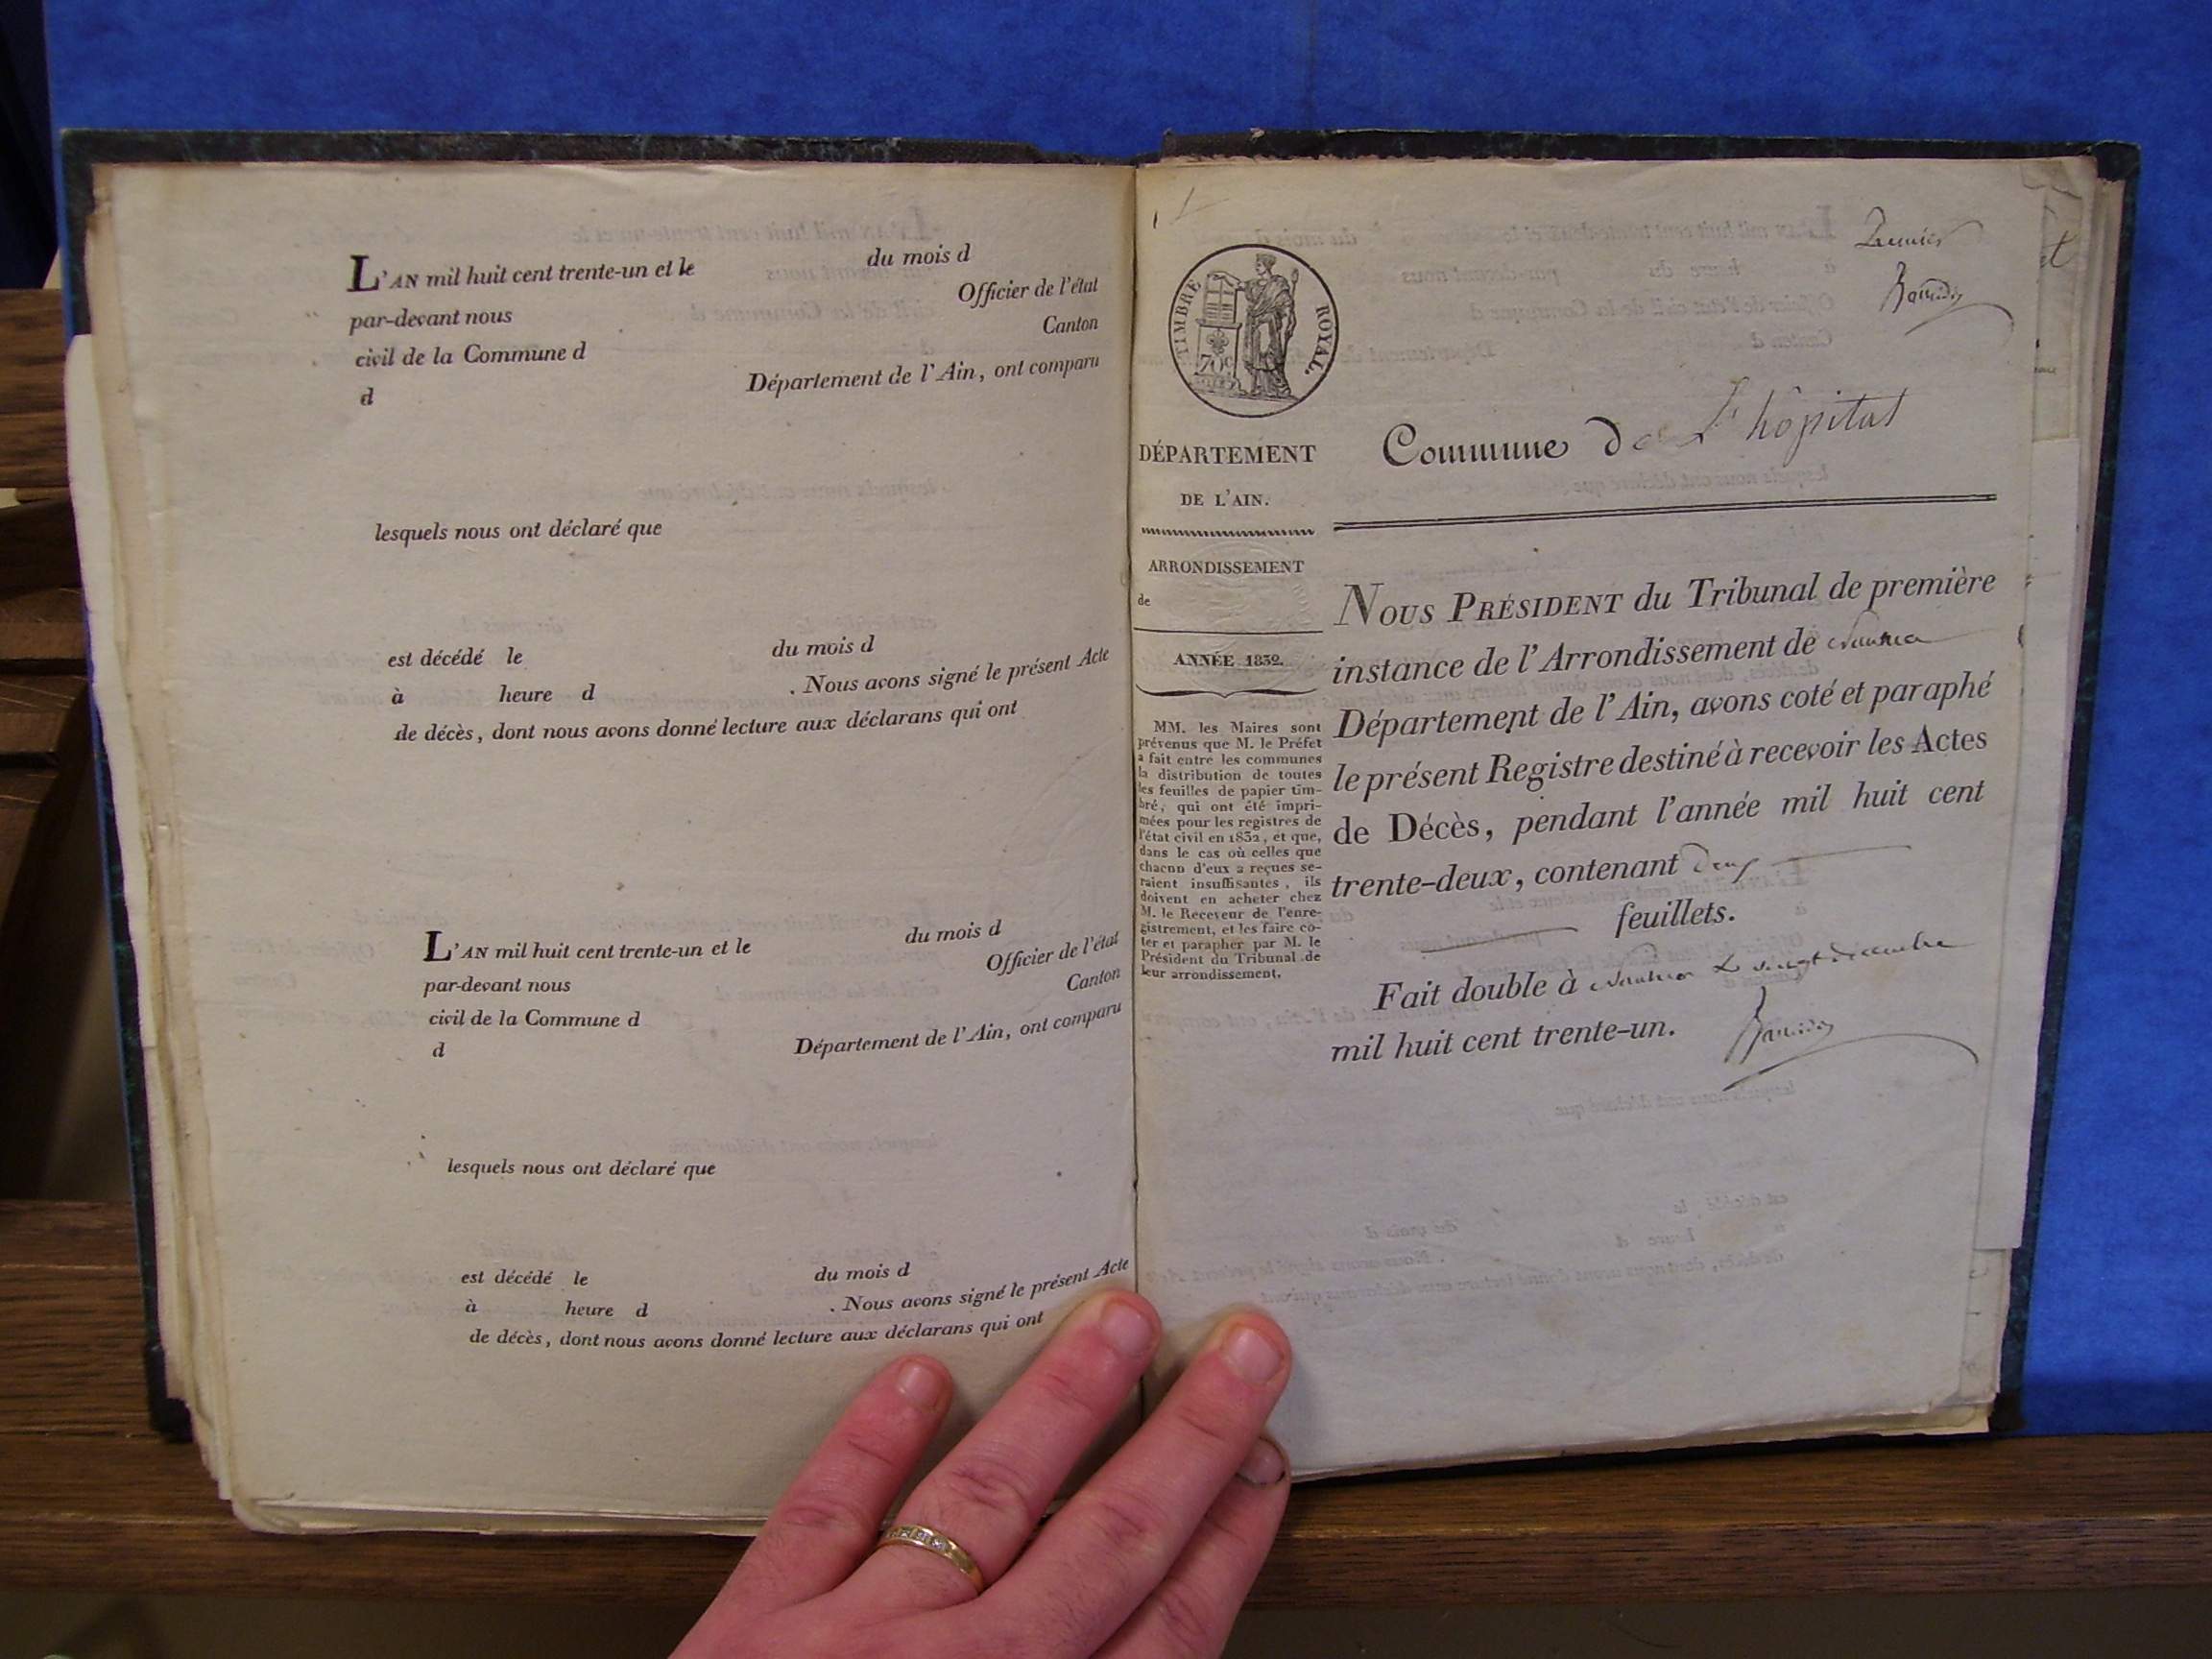 L'AN mil huit cent trente-un et le du mois d
par-devant nous Officier de l'état
civil de la Commune d Canton
d Département de l'Ain, ont comparu
lesquels nous ont déclaré que
est décédé le du mois d
à heure d . Nous avons signé le présent Acte
de décès, dont nous avons donné lecture aux déclarans qui ont
L'AN mil huit cent trente-un et le du mois d
par-devant nous Officier de l'état
civil de la Commune d Canton
d Département de l'Ain, ont comparu
lesquels nous ont déclaré que
est décédé le du mois d
à heure d . Nous avons signé le présent Acte
de décès, dont nous avons donné lecture aux déclarans qui ont
Premier
TIMBRE ROYAL.
70c
DÉPARTEMENT
DE L'AIN.
ARRONDISSEMENT
de
ANNÉE 1832.
MM. les Maires sont
prévenus que M. le Préfet
a fait entre les communes
la distribution de toutes
les feuilles de papier tim-
bré, qui ont été impri-
mées pour les registres de
l'état civil en 1832, et que,
dans le cas où celles que
chacun d'eux a reçues se-
raient insuffisantes, ils
doivent en acheter chez
M. le Receveur de l'enre-
gistrement, et les faire co-
ter et parapher par M. le
Président du Tribunal de
leur arrondissement.
Commune de L'hôpital
NOUS PRÉSIDENT du Tribunal de première
instance de l'Arrondissement de Nantua
Département de l'Ain, avons coté et paraphé
le présent Registre destiné à recevoir les Actes
de Décès, pendant l'année mil huit cent
trente-deux, contenant deux
feuillets.
Fait double à Nantua le vingt décembre
mil huit cent trente-un.